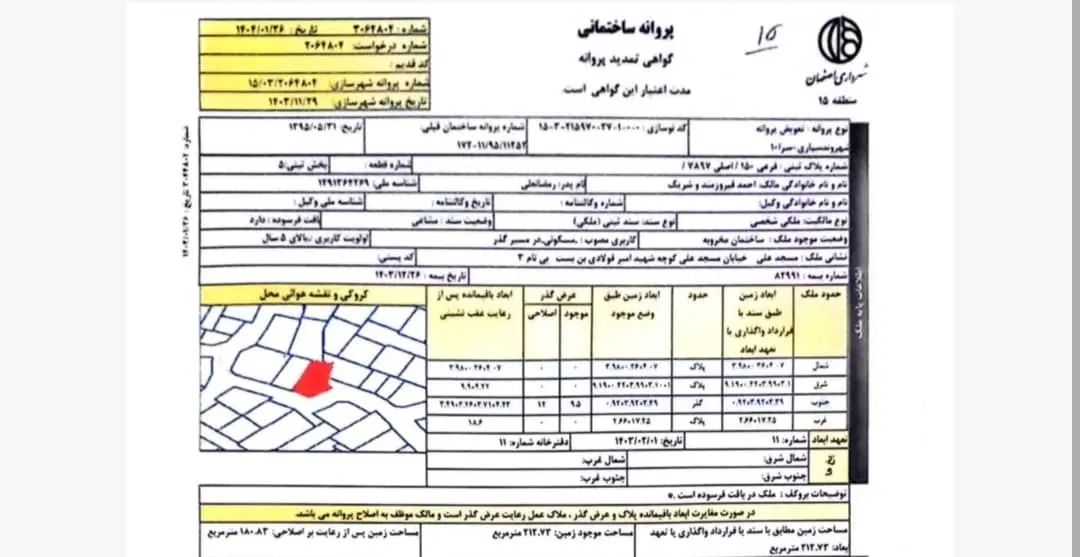 پروانه ساختمانی
گواهی تمدید پروانه
مدت اعتبار این گواهی است.
۱۵
شهرداری اصفهان
منطقه ۱۵
شماره: ۳۰۶۴۸۰۴ تاریخ: ۱۴۰۴/۰۱/۲۶
شماره درخواست: ۲۰۶۴۸۰۴
کد قدیم:
شماره پروانه شهرسازی: ۱۵/۰۳/۲۰۶۴۸۰۴
تاریخ پروانه شهرسازی: ۱۴۰۳/۱۱/۲۹
نوع پروانه: تعویض پروانه
کد نوسازی: ۱۵-۳-۲۱۵۹۷-۲۷-۱-۰-۰-۰
شماره پروانه ساختمان قبلی: ۱۷۲-۱۱/۹۵/۱۱۲۵۲
تاریخ: ۱۳۹۵/۰۵/۳۱
شماره پلاک ثبتی: فرعی ۱۵۰ / اصلی ۷۸۹۷ / شماره قطعه: بخش ثبتی: ۵
نام و نام خانوادگی مالک: احمد فیروزمند و شریک نام پدر: رمضانعلی
نام و نام خانوادگی وکیل: شماره وکالتنامه: تاریخ وکالتنامه: شناسه ملی وکیل:
نوع مالکیت: ملکی شخصی نوع سند: سند ثبتی (ملکی) وضعیت سند: مشاعی بافت فرسوده: دارد
وضعیت موجود ملک: ساختمان مخروبه کاربری مصوب: مسکونی,در مسیر گذر اولویت کاربری: بالای ۵ سال
نشانی ملک: مسجد علی خیابان مسجد علی کوچه شهید امیر فولادی بن بست بی نام ۳ کد پستی:
شماره بیمه: ۸۲۹۹۱ تاریخ بیمه: ۱۴۰۳/۱۲/۲۶
اطلاعات پایه ملک
حدود ملک
ابعاد زمین طبق سند یا قرارداد واگذاری یا تعهد ابعاد
حدود
ابعاد زمین طبق وضع موجود
عرض گذر
موجود اصلاحی
ابعاد باقیمانده پس از رعایت عقب نشینی
کروکی و نقشه هوائی محل
شمال پلاک
شرق پلاک
جنوب گذر ۹.۵ ۱۲
غرب پلاک ۱۸.۶
تعهد ابعاد شماره: ۱۱ تاریخ: ۱۴۰۳/۰۲/۰۱ دفترخانه شماره: ۱۱
شمال شرق: شمال غرب:
جنوب شرق: جنوب غرب:
توضیحات بروکف: ملک در بافت فرسوده است.
در صورت مغایرت ابعاد باقیمانده پلاک و عرض گذر، ملاک عمل رعایت عرض گذر است و مالک موظف به اصلاح پروانه می باشد.
مساحت زمین مطابق با سند یا قرارداد واگذاری یا تعهد ابعاد: ۲۱۲.۷۳ مترمربع
مساحت موجود زمین: ۲۱۲.۷۳ مترمربع
مساحت زمین پس از رعایت بر اصلاحی: ۱۸۰.۸۳ مترمربع